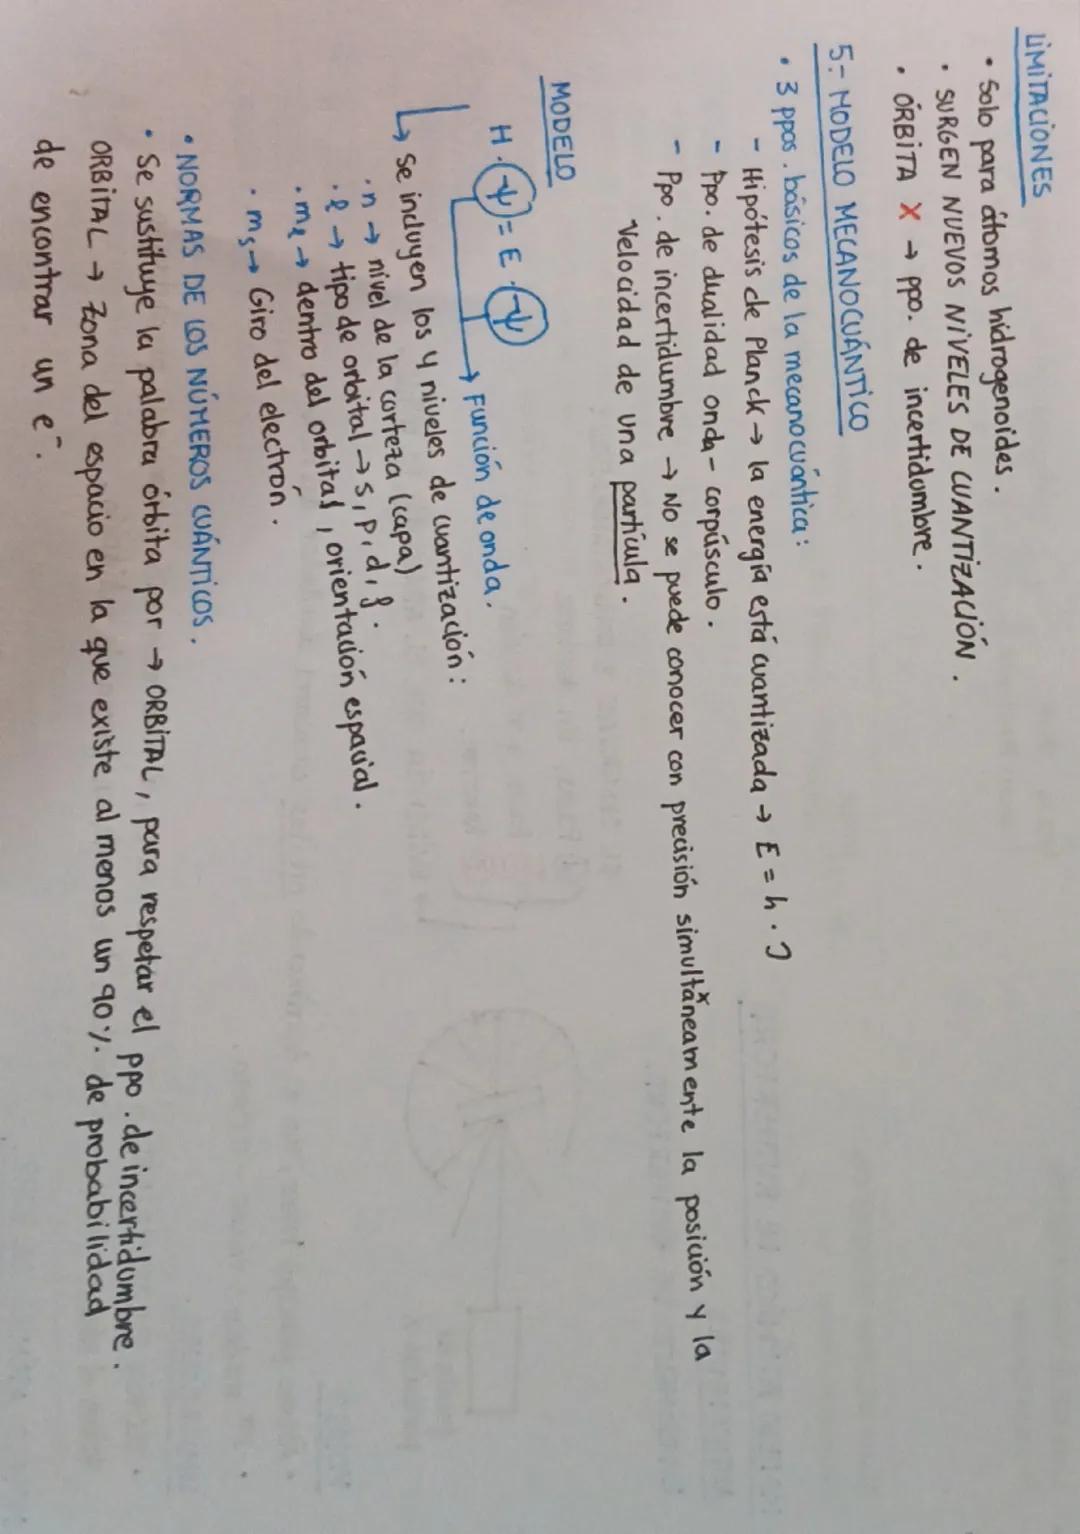 LIMITACIONES
• Solo para átomos hidrogenoides.
• SURGEN NUEVOS NIVELES DE CUANTIZACIÓN.
• ÓRBITA X → ppo. de incertidumbre.
5.- MODELO MECANOCUÁNTICO
• 3 ppos. básicos de la mecanocuántica:
- Hipótesis de Planck → la energía está cuantizada → E = h · ν
- Ppo. de dualidad onda-corpúsculo.
- Ppo. de incertidumbre → No se puede conocer con precisión simultáneamente la posición y la
Velocidad de una partícula.
MODELO
H · ψ = E · ψ
→ Función de onda.
↳ Se incluyen los 4 niveles de cuantización:
· n → nivel de la corteza (capa)
· l → tipo de orbital → s, p, d, f.
· mℓ → dentro del orbital, orientación espacial.
· ms → Giro del electrón.
• NORMAS DE LOS NÚMEROS CUÁNTICOS.
• Se sustituye la palabra órbita por → ORBITAL, para respetar el ppo. de incertidumbre.
ORBITAL → Zona del espacio en la que existe al menos un 90% de probabilidad
de encontrar un e⁻.